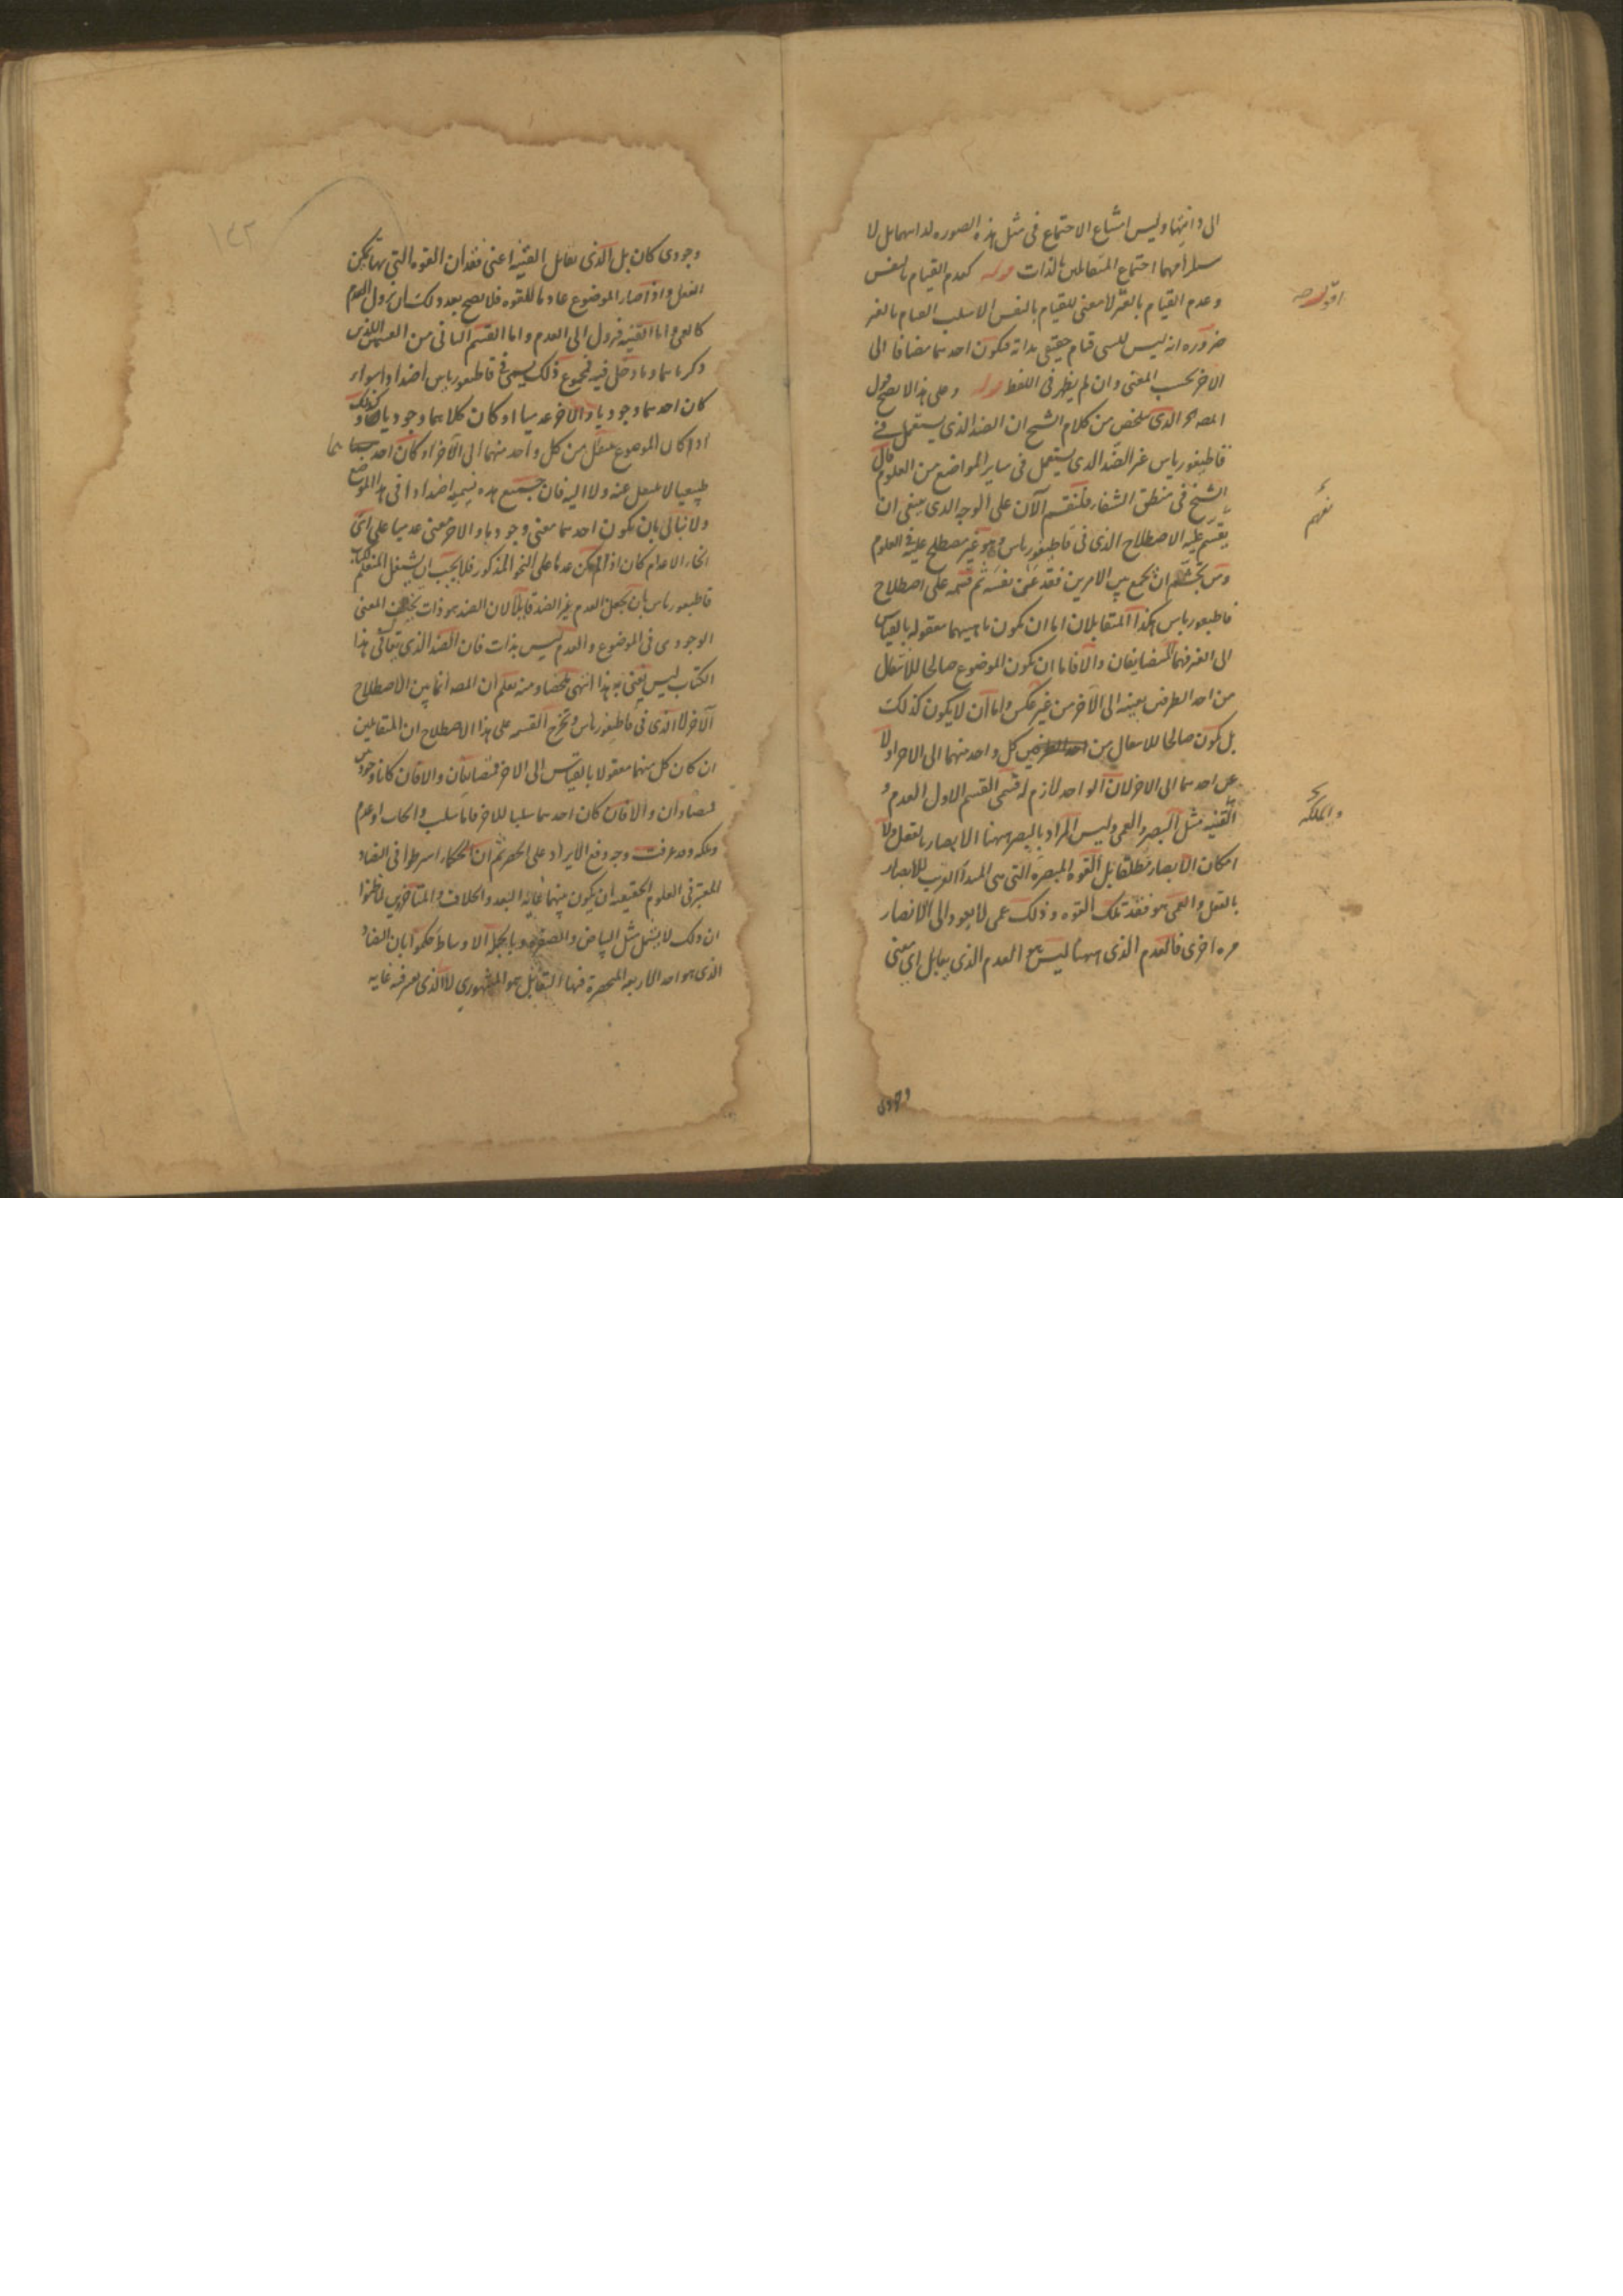 الى ذاتيهما وليس امتناع الاجتماع فى مثل هذه الصوره لذاتيهما بل لا
ستلزامهما اجتماع المتقابلين بالذات قوله كعدم القيام بالنفس
وعدم القيام بالغير لا معنى للقيام بالنفس الا سلب القيام بالغير
ضروره انه ليس للشى قيام حقيقى بذاته فيكون احدهما مضافا الى
الاخر بحسب المعنى وان لم يظهر فى اللفظ قوله وعلى هذا لا يصح قول
المصه الذى يتلخص من كلام الشيخ ان الضد الذى يستعمل فى
قاطيغورياس غير الضد الذى يستعمل فى ساير المواضع من العلوم قال
الشيخ فى منطق الشفاء فلنقسم الآن على الوجه الذى ينبغى ان
يقسم عليه الاصطلاح الذى فى قاطيغورياس وهو غير مصطلح عليه فى العلوم
ومن تجشم ان يجمع بين الامرين فقد عنى نفسه ثم قسمه على اصطلاح
قاطيغورياس هكذا المتقابلان اما ان يكون ماهيتهما معقوله بالقياس
الى الغير فهما المتضايفان والا فاما ان يكون الموضوع صالحا للانتقال
من احد الطرفين بعينه الى الآخر من غير عكس واما ان لا يكون كذلك
بل يكون صالحا للانتقال من كل واحد منهما الى الاخر او لا
عن احدهما الى الاخر لان الواحد لازم له فسمى القسم الاول العدم و
القنيه مثل البصر والعمى وليس المراد بالبصر ههنا الابصار بالفعل ولا
امكان الابصار مطلقا بل القوه المبصره التى هى المبدأ القريب للابصار
بالفعل والعمى هو فقد تلك القوه وذلك عمى لا يعود الى الابصار
مره اخرى فالعدم الذى ههنا ليس هو العدم الذى يقابل اى معنى
وجودى
وجودى كان بل الذى يقابل القنيه اعنى فقدان القوه التى بها يمكن
الفعل واذا صار الموضوع عادما للقوه فلا يصح بعد ذلك ان يزول العدم
كالعمى واما القنيه فيزول الى العدم واما القسم الثانى من القسمين اللذين
ذكرناهما وما دخل فيه فمجموع ذلك يسمى فى قاطيغورياس اضدادا سواء
كان احدهما وجوديا والآخر عدميا او كان كلاهما وجوديا وكذلك
اذا كان الموضوع ينتقل من كل واحد منهما الى الآخر او كان احدهما
طبيعيا لا ينتقل عنه ولا اليه فان جميع هذه يسميه اضدادا فى هذا الموضع
ولا نبالى بان يكون احدهما معنى وجوديا والاخر معنى عدميا على اى
انحاء الاعدام كان اذا لم يكن عدما على النحو المذكور فلا يجب ان يشتغل المتعلم لكتاب
قاطيغورياس بان يجعل العدم غير الضد قايلا لان الضد هو ذات يخلف المعنى
الوجودى فى الموضوع والعدم ليس بذات فان الضد الذى يتعاقى هذا
الكتاب ليس يعنى به هذا انتهى ملخصا ومنه يعلم ان المصه انما بين الاصطلاح
الآخر لا الذى فى قاطيغورياس وتخرج القسمه على هذا الاصطلاح ان المتقابلين
ان كان كل منهما معقولا بالقياس الى الاخر فمتضايفان والا فان كانا وجوديين
فمتضادان والا فان كان احدهما سلبا للاخر فاما سلب وايجاب او عدم
وملكه وقد عرفت وجه وقع الايراد على الحصر ثم ان الحكماء اشترطوا فى التضاد
المعتبر فى العلوم الحقيقيه ان يكون بينهما غايه البعد والخلاف والمتأخرين لما ظنوا
ان ذلك لا يشمل مثل البياض والصفره وبالجمله الاوساط حكموا بان التضاد
الذى هو احد الاربعه المنحصرة فيها التقابل هو المشهورى لا الذى يعتبر فيه غايه
١٤٢
والملكه